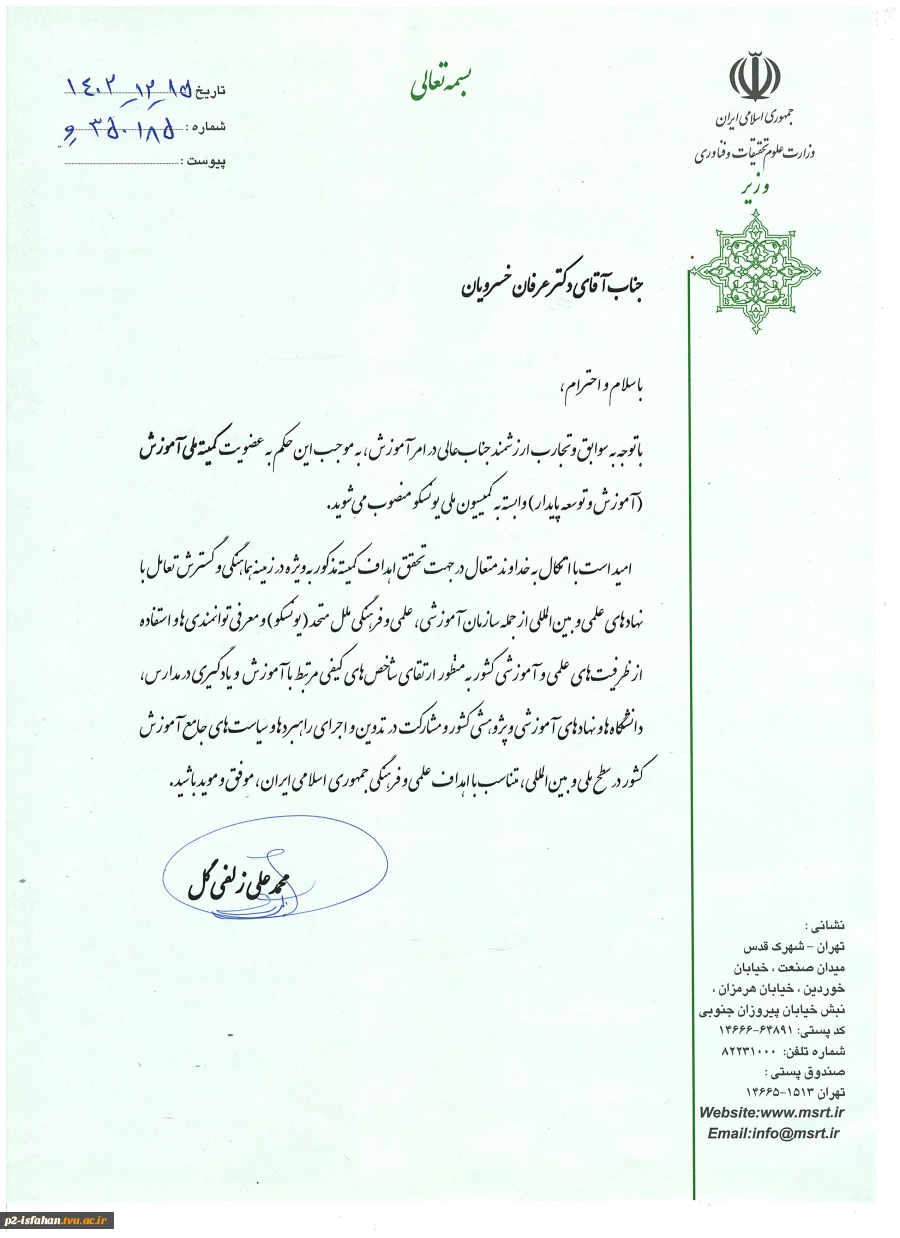 بسمه تعالی
جمهوری اسلامی ایران
وزارت علوم تحقیقات و فناوری
وزیر
تاریخ ۱۴۰۲-۱۲-۱۵
شماره : ۳۵۰۱۸۵ و
پیوست :
جناب آقای دکتر عرفان خسرویان
با سلام و احترام،
با توجه به سوابق و تجارب ارزشمند جناب عالی در امر آموزش، به موجب این حکم به عضویت کمیته ملی آموزش
(آموزش و توسعه پایدار) وابسته به کمیسیون ملی یونسکو منصوب می شوید.
امید است با اتکال به خداوند متعال در جهت تحقق اهداف کمیته مذکور به ویژه در زمینه هماهنگی و گسترش تعامل با
نهادهای علمی و بین المللی از جمله سازمان آموزشی، علمی و فرهنگی ملل متحد (یونسکو) و معرفی توانمندی ها و استفاده
از ظرفیت های علمی و آموزشی کشور به منظور ارتقای شاخص های کیفی مرتبط با آموزش و یادگیری در مدارس،
دانشگاه ها و نهادهای آموزشی و پژوهشی کشور و مشارکت در تدوین و اجرای راهبردها و سیاست های جامع آموزش
کشور در سطح ملی و بین المللی، متناسب با اهداف علمی و فرهنگی جمهوری اسلامی ایران، موفق و موید باشید.
محمد علی زلفی گل
نشانی :
تهران - شهرک قدس
میدان صنعت ، خیابان
خوردین ، خیابان هرمزان ،
نبش خیابان پیروزان جنوبی
کد پستی: ۶۴۸۹۱-۱۴۶۶۶
شماره تلفن: ۸۲۲۳۱۰۰۰
صندوق پستی :
تهران ۱۵۱۳-۱۴۶۶۵
Website:www.msrt.ir
Email:info@msrt.ir
p2-isfahan.tvu.ac.ir